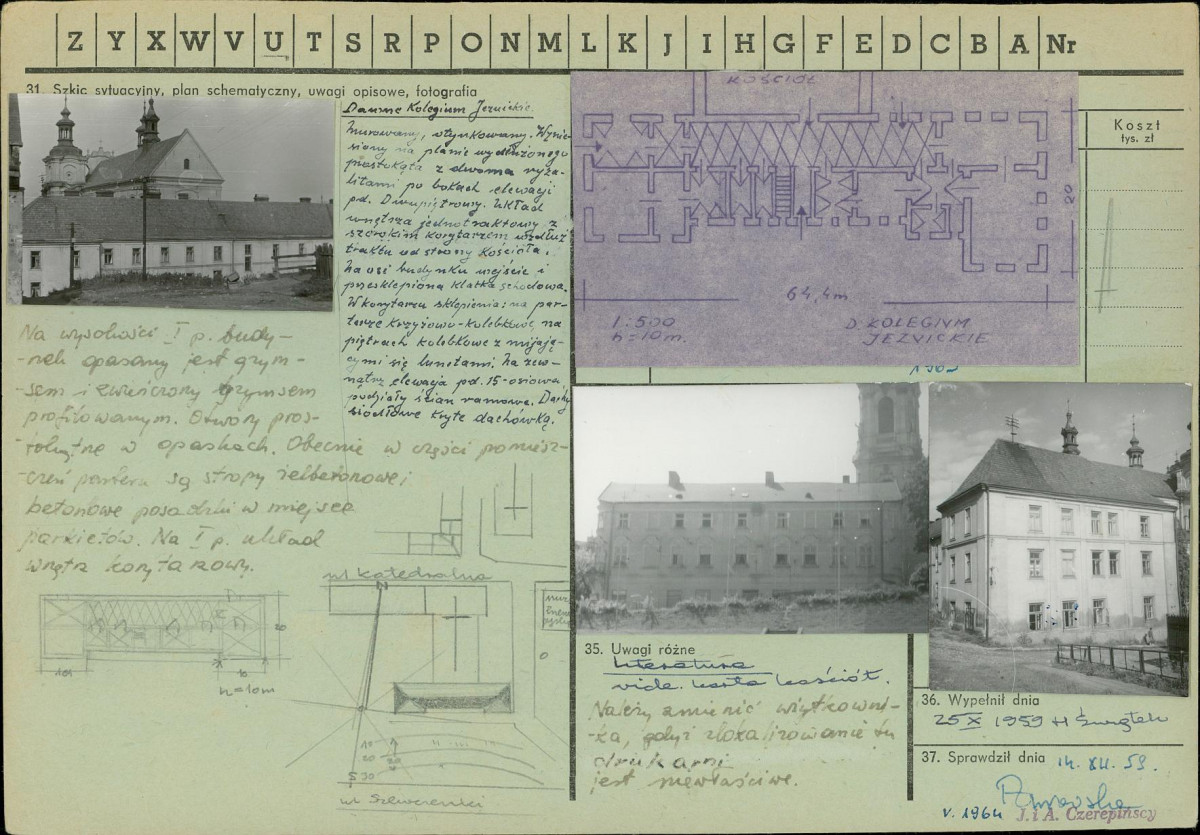 Z Y X W V U T S R P O N M L K J I H G F E D C B A Nr
31. Szkic sytuacyjny, plan schematyczny, uwagi opisowe, fotografia
Dawne Kolegium Jezuickie.
Murowany, otynkowany. Wznie-
siony na planie wydłużonego
prostokąta z dwoma ryza-
litami po bokach elewacji
pd. Dwupiętrowy. Układ
wnętrza jednotraktowy z
szerokim korytarzem wzdłuż
traktu od strony Kościoła.
Na osi budynku wejście i
przesklepiona klatka schodowa.
W korytarzu sklepienia: na par-
terze krzyżowo-kolebkowe, na
piętrach kolebkowe z mijają-
cymi się lunetami. Na zew-
nątrz elewacja pd. 15-osiowa
podziały ścian ramowe. Dachy
siodłowe kryte dachówką.
Na wysokości I p. budy-
-nek opasany jest gzym-
-sem i zwieńczony gzymsem
profilowanym. Otwory pros-
-tokątne w opaskach. Obecnie w części pomiesz-
-czeń parteru są stropy żelbetonowe i
betonowe posadzki w miejsce
parkietów. Na I p. układ
wnętrz korytarzowy.
20
10
h=10m
ul Katedralna
N
muz.
10
20
S 30
ul Szewczenki
KOŚCIÓŁ
20
64,4m
1:500
h=10m.
D. KOLEGIUM
JEZUICKIE
Koszt
tys. zł
35. Uwagi różne
Literatura
vide. karta kościół.
Należy zmienić użytkowni-
-ka, gdyż zlokalizowanie tu
drukarni
jest niewłaściwe.
36. Wypełnił dnia
25 X 1959 H
37. Sprawdził dnia 14. XII. 59.
V. 1964 J. i A. Czerepińscy